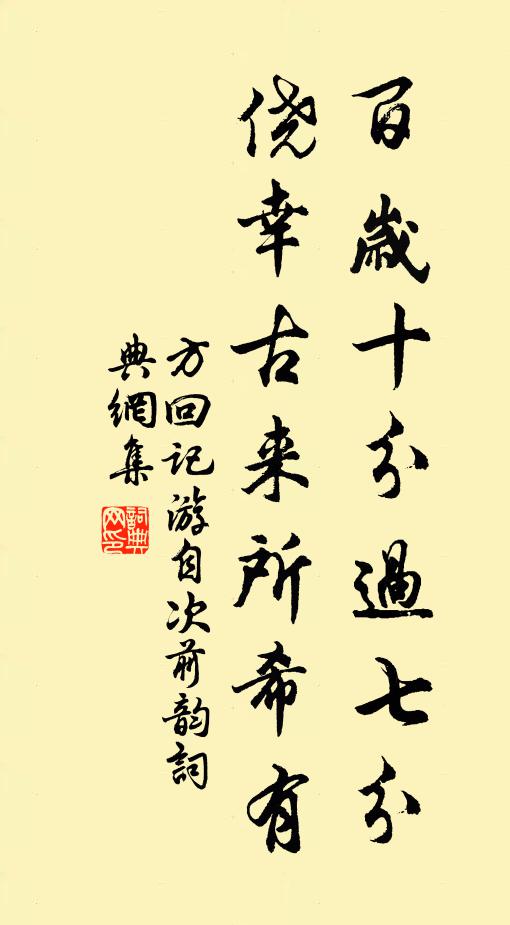 百歲十分過七分
僥幸古来所希有
方回記游自次前韵詞
典網集
詞典网印